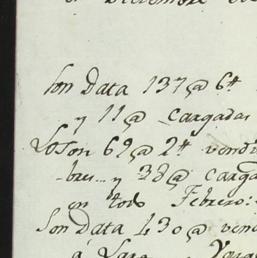 Diciembre de
Son Data 137@ 6tt
y 11@ cargadas
Son 69@ 2tt vendi
bre... y 38@ carga
en todo Febrero:
Son Data 430@ vend
á Lara